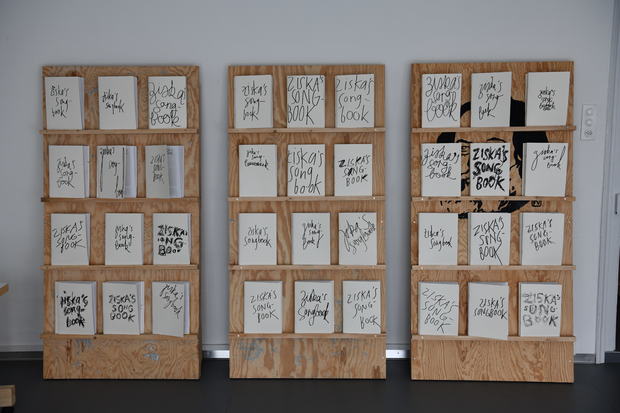 Ziska's
Song-
book
ziska's
songbook
ziska's
song
book
ziska's
song
book
ZISKA'S
SONG-
BOOK
ziska's
Song-
book
ziska's
song-
book
ziska's
song
book
ziska's
song-
book
ziska's
song-
book
ZISKA'S
SONG-
BOOK
ziska's
song
ZISKA'S
song
book
ZISKA'S
SONG
BOOK
ziska's
song-
book
ZISKA'S
SONG
BOOK
ZISKA'S
SONG-
BOOK
ziska's
song-
book
ZISKA'S
SONG
BOOK
ziska's
songbook
ziska's
song-
book
ziska's
songbook
ziska's
songbook
ZISKA'S
SONG
BOOK
ZISKA'S
SONG-
BOOK
ziska's
song-
book
ZISKA'S
SONG
BOOK
ZISKA'S
SONG-
BOOK
ziska's
Songbook
ZISKA'S
SONG-
BOOK
ZISKA'S
SONG-
BOOK
ZISKA'S
SONGBOOK
ZISKA'S
SONG
BOOK